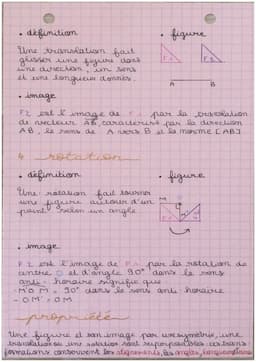 • définition
• figure
Une translation fait
glisser une figure dans
une direction, un sens
et une longueur donnés.
F1
F2
A
B
• image
F2 est l'image de F1 par la translation
de vecteur AB, caractérisé par la direction
AB, le sens de A vers B et la norme [AB]
4 rotation
• définition
• figure
Une rotation fait tourner
une figure autour d'un
point selon un angle
M
• image
F2 est l'image de F1 par la rotation de
centre O et d'angle 90° dans le sens
anti-horaire signifie que
- M'OM = 90° dans le sens anti-horaire
- OM' = OM
propriété
Une figure et son image par une symétrie, une
translation ou une rotation sont superposables. ces trans-
formations conservent les alignements, les angles,